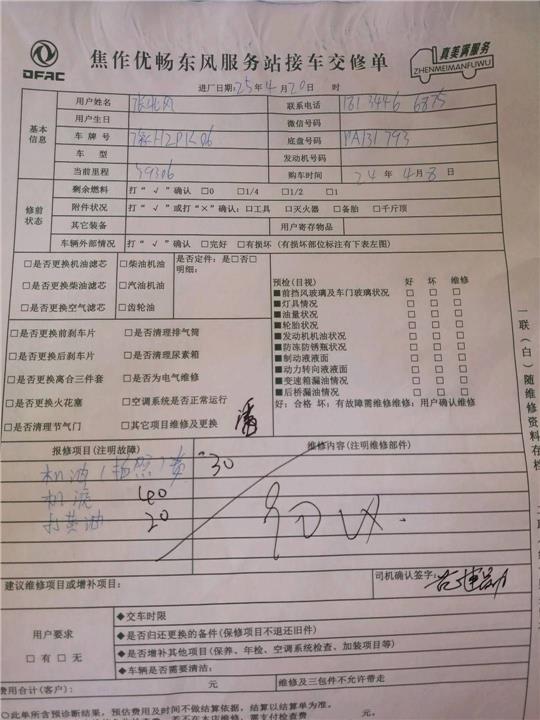 DFAC
焦作优畅东风服务站接车交修单
真美满服务
ZHENMEIMANFUWU
进厂日期:25年4月20日 时
基本信息
用户姓名 联系电话
用户生日 微信号码
车牌号 底盘号码 PA131793
车型 发动机号码
当前里程 59306 购车时间 24年4月8日
修前状态
剩余燃料 打“√”确认 □0 □1/4 □1/2 □1
附件状况 打“√”或打“×”确认:□工具 □灭火器 □备胎 □千斤顶
其它装备 用户寄存物品
车辆外部情况 打“√”确认 □完好 □有损坏(有损坏部位标注有下表左图)
□是否更换机油滤芯 □柴油机油 是否定件:是□否□
明细:
□是否更换柴油滤芯 □汽油机油
□是否更换空气滤芯 □齿轮油
预检(目视) 好 坏 维修
■前挡风玻璃及车门玻璃状况 □ □ □
■灯具情况 □ □ □
■油量状况 □ □ □
■轮胎状况 □ □ □
■发动机机油状况 □ □ □
■防冻防锈瓶状况 □ □ □
■制动液液面 □ □ □
■动力转向液液面 □ □ □
■变速箱漏油情况 □ □ □
■后桥漏油情况 □ □ □
好:合格 坏:有故障需维修维修:用户确认维修
□是否更换前刹车片 □是否清理排气筒
□是否更换后刹车片 □是否清理尿素箱
□是否更换离合三件套 □是否为电气维修
□是否更换火花塞 □空调系统是否正常运行
□是否清理节气门 □其它项目维修及更换
一联(白)随维修资料存档
报修项目(注明故障) 维修内容(注明维修部件)
机油 费 30
机滤 40
打黄油 20
建议维修项目或增补项目: 司机确认签字:
用户要求
□有 □无
◆交车时限
◆是否归还更换的备件(保修项目不退还旧件)
◆是否增补其他项目(保养、年检、空调系统检查、加装项目等)
◆车辆是否需要清洁:
费用合计(客户): 元 维修及三包件不允许带走
◇此单所含预诊断结果,预估费用及时间不做结算依据,结算以结算单为准。
元